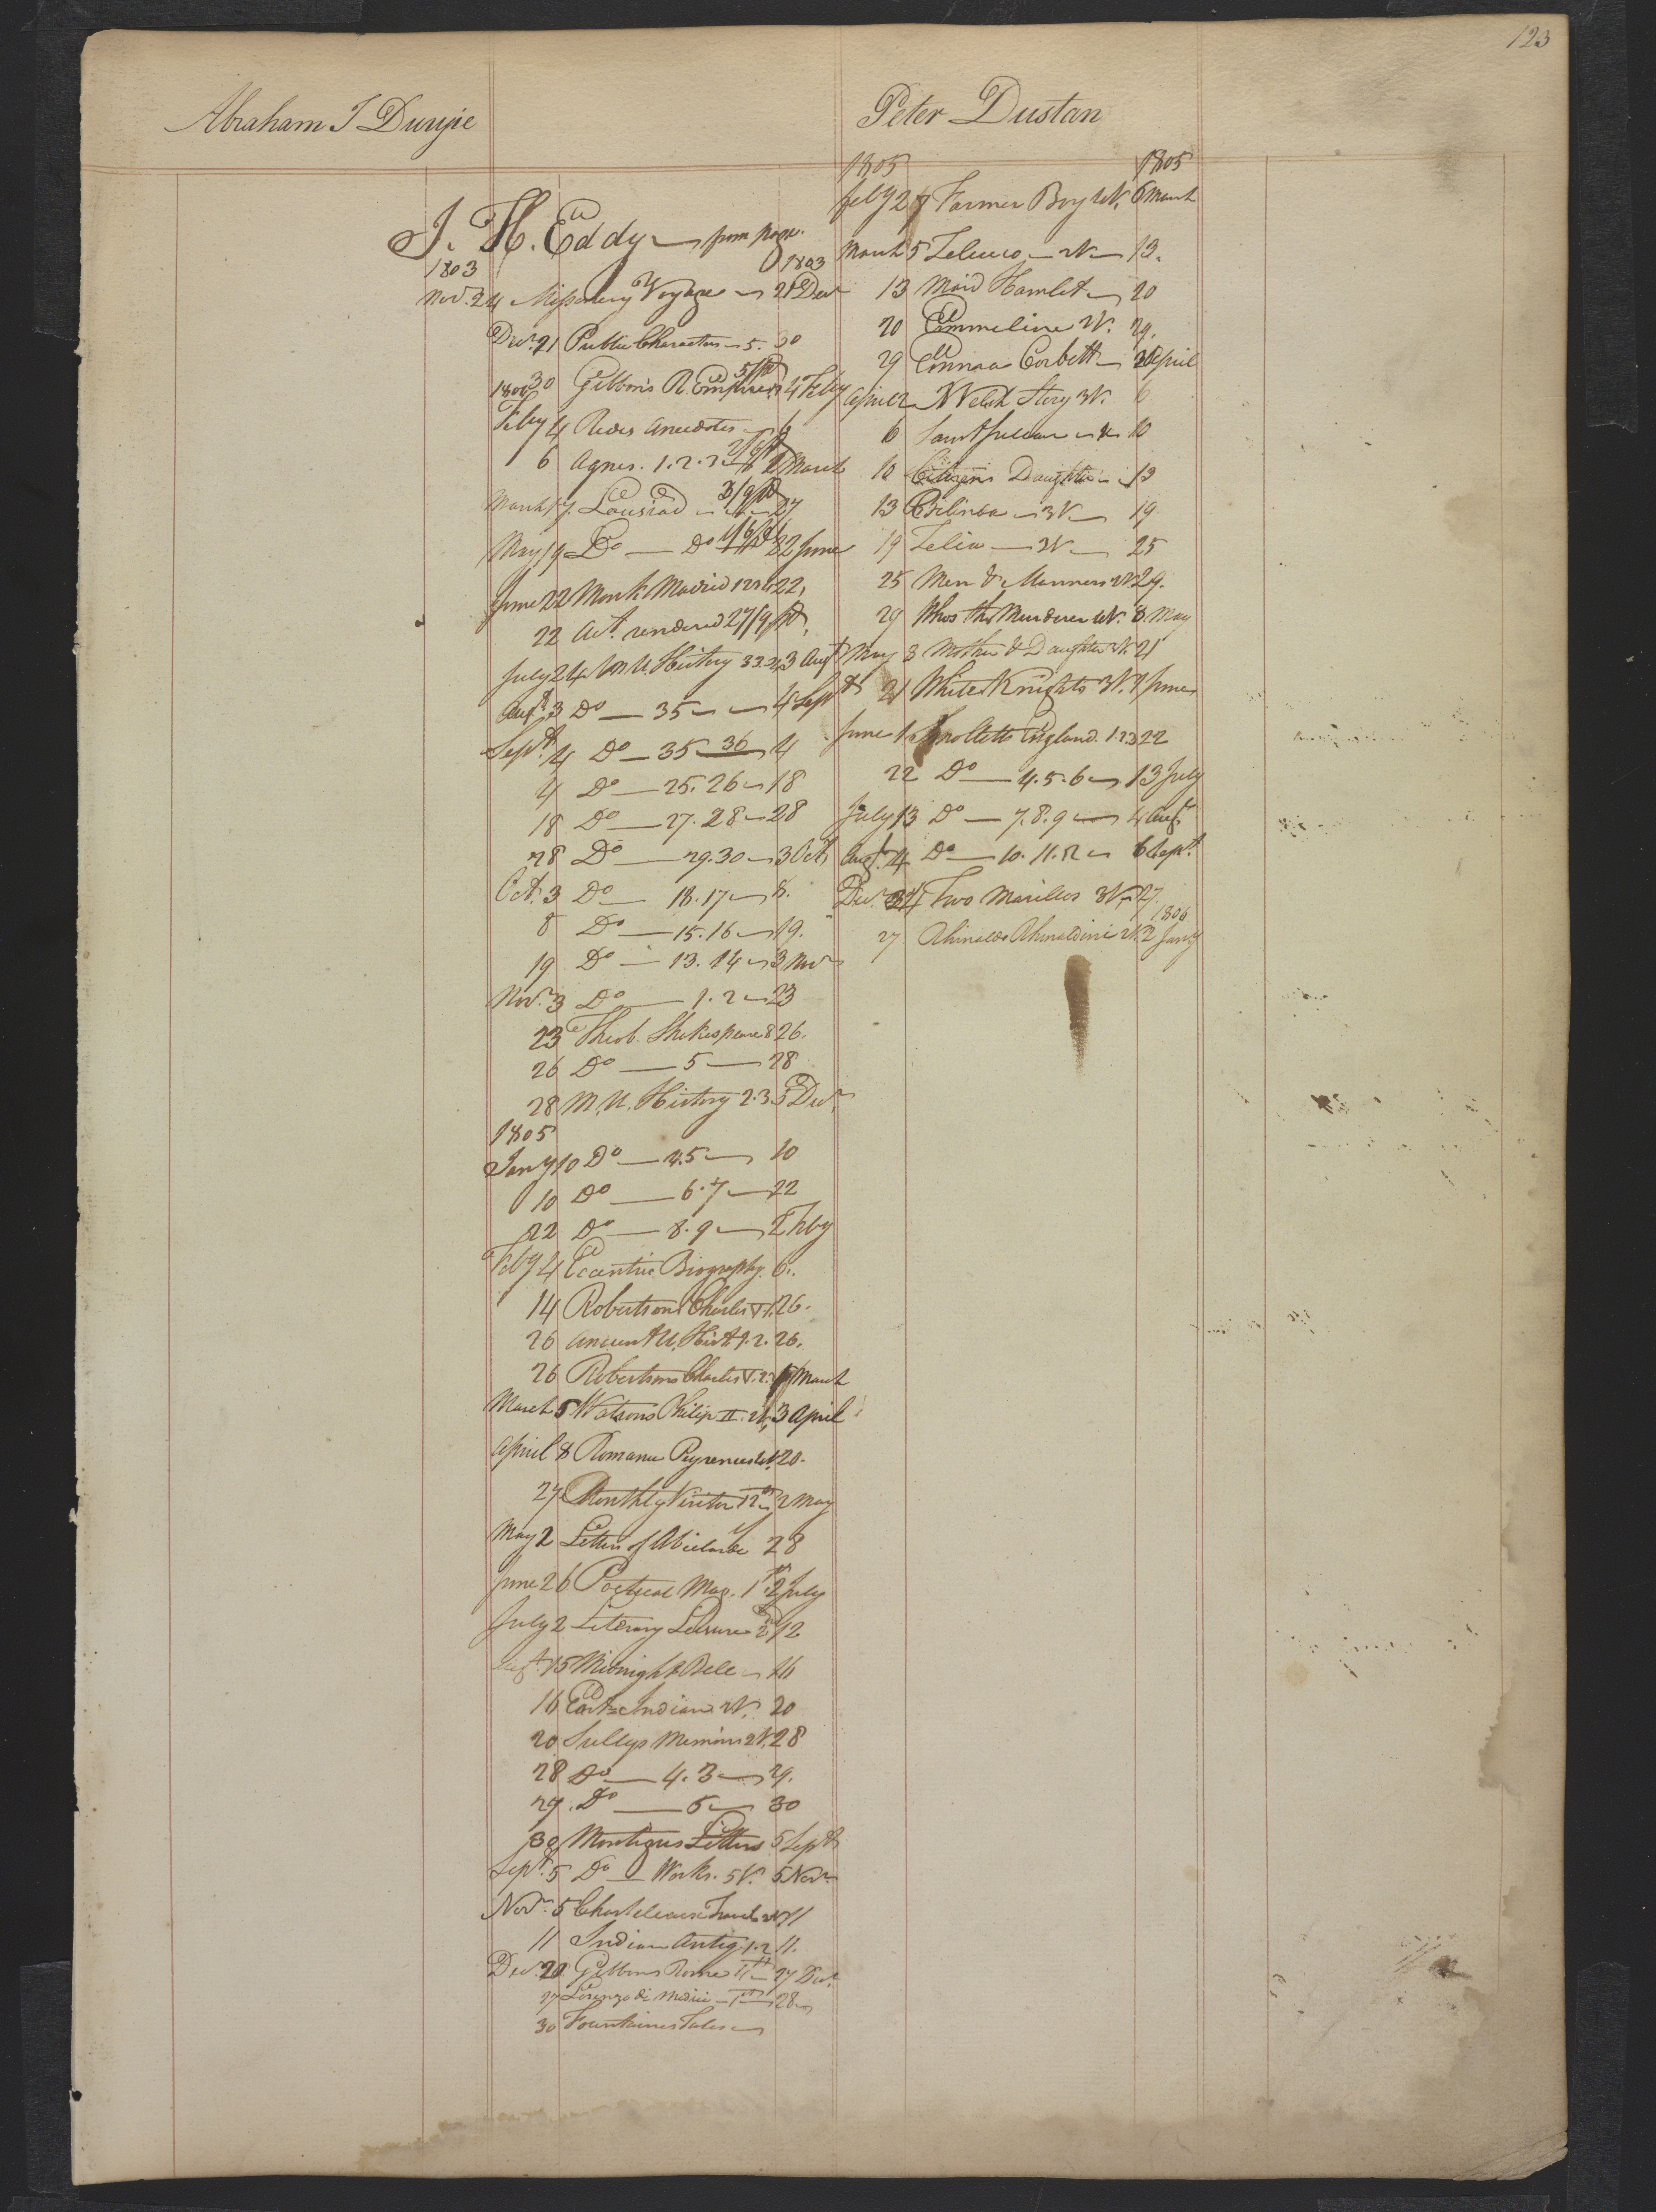 123
Abraham J Duryie
J. H. Eddy from page.
1803 1803
Nov. 24 Missionery Voyage 21 Decr
Decr. 21 Public Characters 5. 30
30 Gibbon's R. Empire 4 Feby
Feby 4 Anecdotes 6
6 Agnes. 1.2.3 2 March
March 17 Lousiad 27
May 19 Do — Do 22 June
June 22 Monk Madrid 22,
22 Act. rendered 27/9 pd,
July 24 M. U. History 33. 3 Augt
Augt. 3 Do — 35 4 Sept
Sept. 4 Do — 35 36 4
4 Do — 25. 26 18
18 Do — 27. 28 28
28 Do — 29. 30 3 Oct
Oct. 3 Do — 18. 17 8.
8 Do — 15. 16 19.
19 Do — 13. 14 3 Nov
Nov. 3 Do — 1. 2 23
23 Theob. Shakespeare 8 26.
26 Do — 5 — 28
28 M. U. History 2. 3 5 Decr.
1805
Jany 10 Do — 4.5 10
10 Do — 6. 7 22
22 Do — 8. 9 2 Feby
Feby 4 Eccentric Biography. 6.
14 Robertsons Charles V 1. 26.
26 Ancient U. Hist. 1. 2. 26.
26 Robertsons Charles V. 2. March
March 5 Watsons Philip II. 2V. 3 April
April 8 Romance Pyrenees 20.
27 Monthly Visitor 12 2 May
May 2 Letters of Abielarde 28
June 26 Poetical Mag. 1st. 2 July
July 2 Literary Leisure 2d 12
Augt. 15 Midnight Bell 16
16 East Indian 2V. 20
20 Sullys Memoirs 2V. 28
28 Do — 4. 3 29.
29. Do — 5 30
30 Montagues Letters 5 Septr
Sept. 5 Do — Works. 5V. 5 Novr
Novr. 5 Chasteleaux Travels 2V 11
11 Indian Antiq 1. 2 11.
Decr. 20 Gibbons Rome 27 Decr.
27 Lorenzo de Medici — 1st 28
30 Fountaines Tales
Peter Dustan
1805 1805
feby 27 Farmer Boy 4V. 6 March
March 5 Zeluco — 2V — 13.
13 Maid Hamlet 20
20 Emmeline 2V. 29.
29 Emma Corbett April
April 2 Welch Story 3V. 6
6 10
10 Citizens Daughter 13
13 Belinda — 3V — 19
19 Zelia — 3V — 25
25 Men & Manners 29.
29 Whos the Murderer 4V. 8 May
May 8 Mother & Daughter V. 21
21 White Knights 3V. June
June 1 Smolletts England. 1.2.3 22
22 Do — 4. 5. 6 13 July
July 13 Do — 7. 8. 9 4 Augt.
Augt. 4 Do — 10. 11. 12 6 Sept.
Decr. 24 Two Marillos 3V. 27.
1806
27 Rhinaldo Rhinaldini 2V. 2 Jany